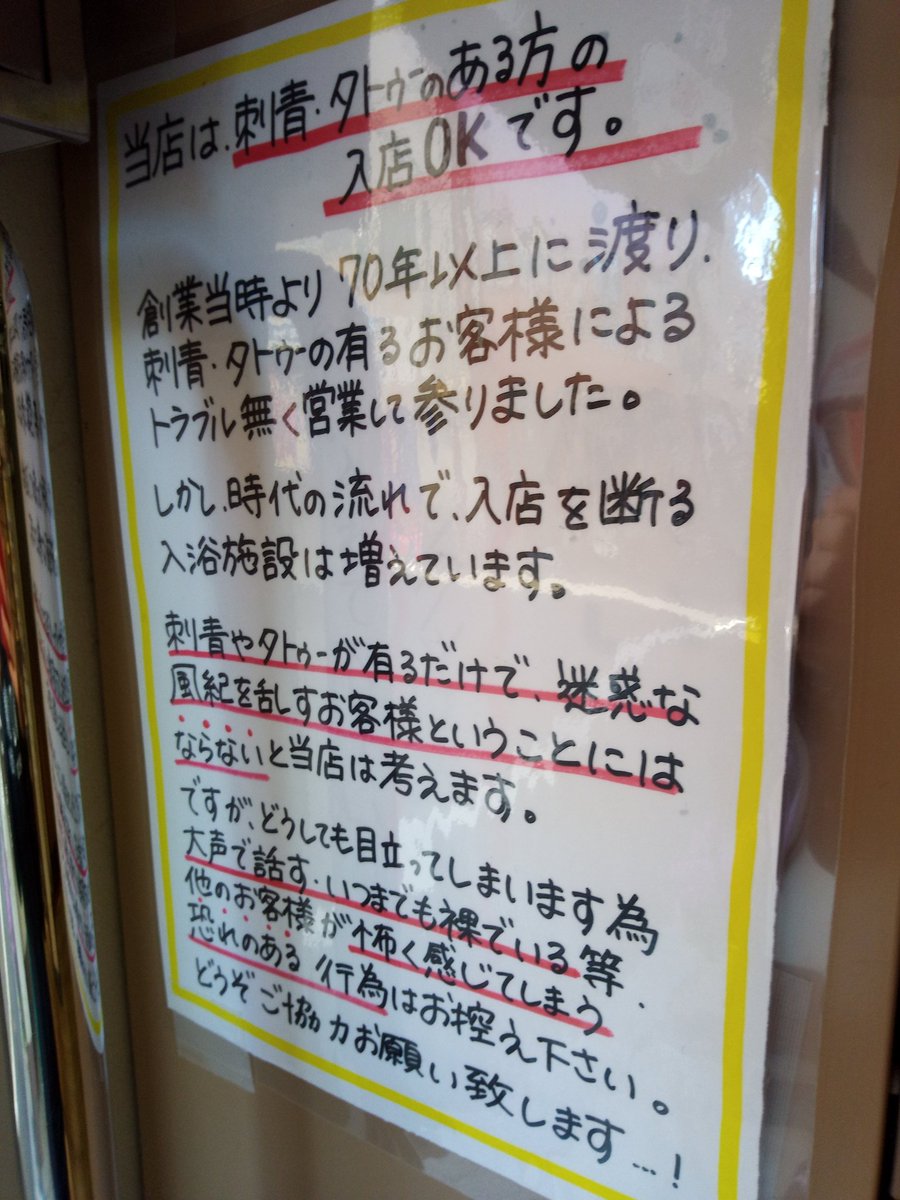 当店は、刺青・タトゥーのある方の
入店OKです。
創業当時より70年以上に渡り、
刺青・タトゥーの有るお客様による
トラブル無く営業して参りました。
しかし、時代の流れで、入店を断る
入浴施設は増えています。
刺青やタトゥーが有るだけで、迷惑な
風紀を乱すお客様ということには
ならないと当店は考えます。
ですが、どうしても目立ってしまいます為
大声で話す・いつまでも裸でいる等、
他のお客様が怖く感じてしまう
恐れのある行為はお控え下さい。
どうぞご協力お願い致します…!